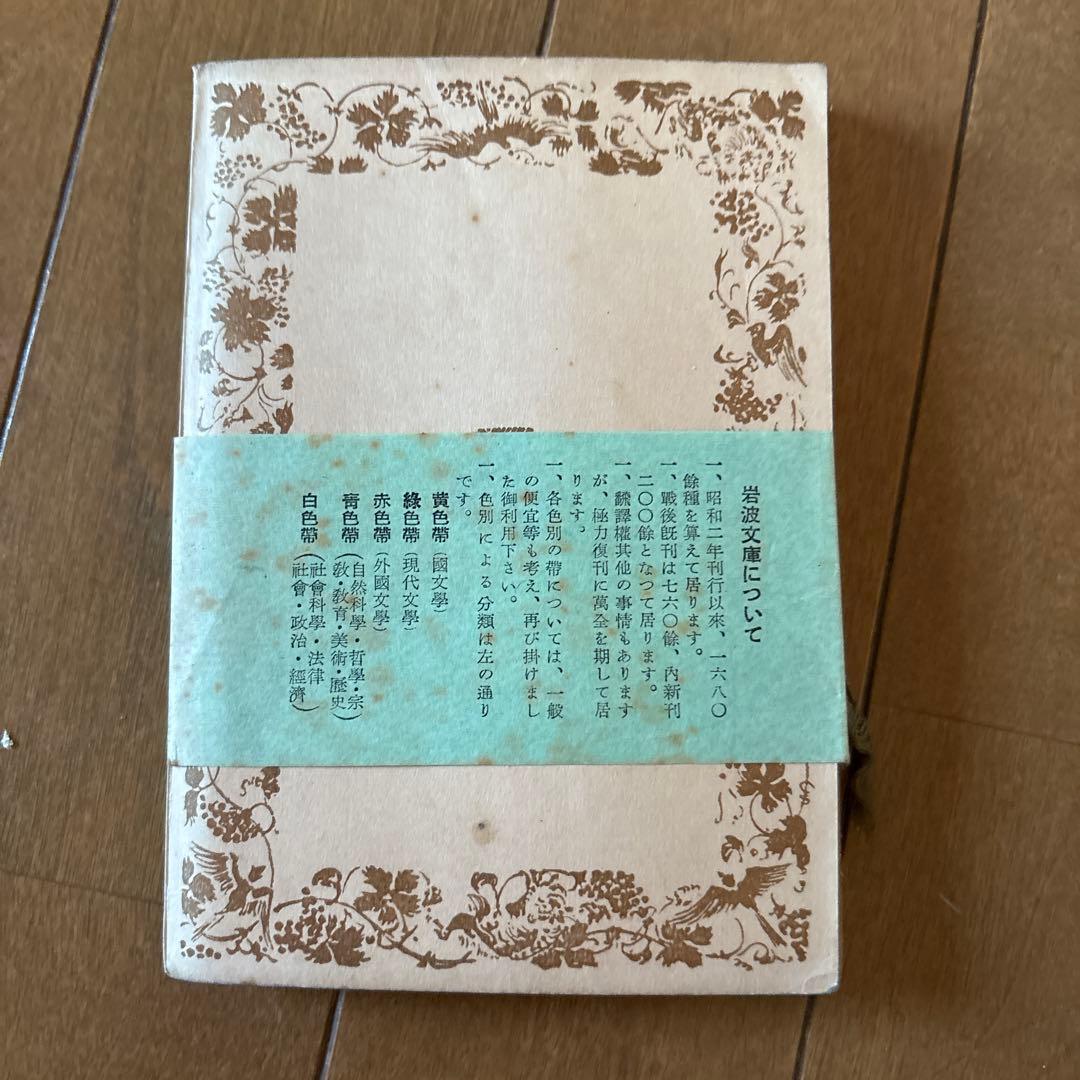 岩波文庫について
一、昭和二年刊行以來、一六八〇
餘種を算えて居ります。
一、戰後旣刊は七六〇餘、內新刊
二〇〇餘となつて居ります。
一、飜譯權其他の事情もあります
が、極力復刊に萬全を期して居
ります。
一、各色別の帶については、一般
の便宜等も考え、再び掛けまし
た御利用下さい。
一、色別による分類は左の通り
です。
黃色帶（國文學）
綠色帶（現代文學）
赤色帶（外國文學）
靑色帶（自然科學・哲學・宗
敎・敎育・美術・歷史）
白色帶（社會科學・法律
社會・政治・經濟）